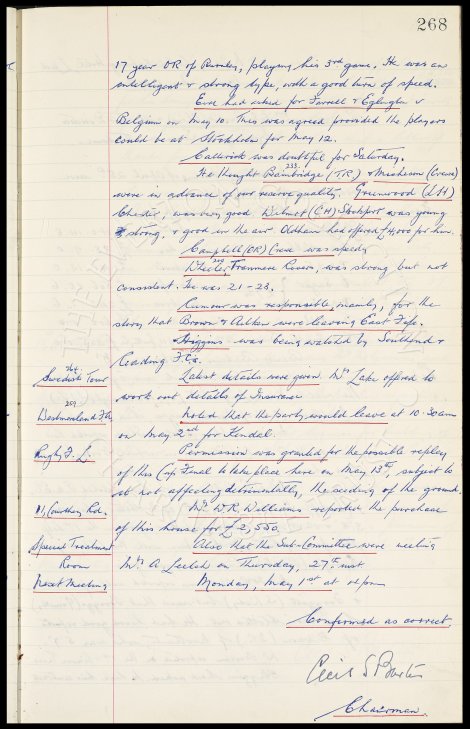 268
17 year OR of Burnley, playing his 3rd game. He was an
intelligent & strong type, with a good turn of speed.
Eire had asked for Farrell & Eglington v
Belgium on May 10. This was agreed provided the players
could be at Stockholm for May 12.
Catterick was doubtful for Saturday.
233
He thought Bainbridge (T.R.) & (Crewe)
were in advance of our reserve quality. Greenwood (LH)
Chester, was very good, (CH) Stockport was young
& strong, & good in the air Oldham had offered £4,000 for him.
Campbell (OR) Crewe was speedy
Wheeler, Tranmere Rovers, was strong but not
consistent. He was 21 - 23.
Rumour was responsible, mainly, for the
story that Brown & Aitken were leaving East Fife.
Higgins was being watched by Southend &
Reading F.Cs.
Swedish Tour
Latest details were given Mr Lake offered to
work out details of Insurance
Westmorland F.A.
Noted that the party would leave at 10.30am
on May 2nd for Kendal.
Rugby F.L.
Permission was granted for the possible replay
of this Cup Final to take place here on May 13th, subject to
it not affecting detrimentally, the seeding of the ground.
Mr W.R. Williams reported the purchase
of this house for £2,550.
Special Treatment
Room
Also that the Sub-Committee were meeting
Mr A. Leetch on Thursday, 27th inst
Next Meeting
Monday, May 1st at
Confirmed as correct.
Cecil S Baxter
Chairman.